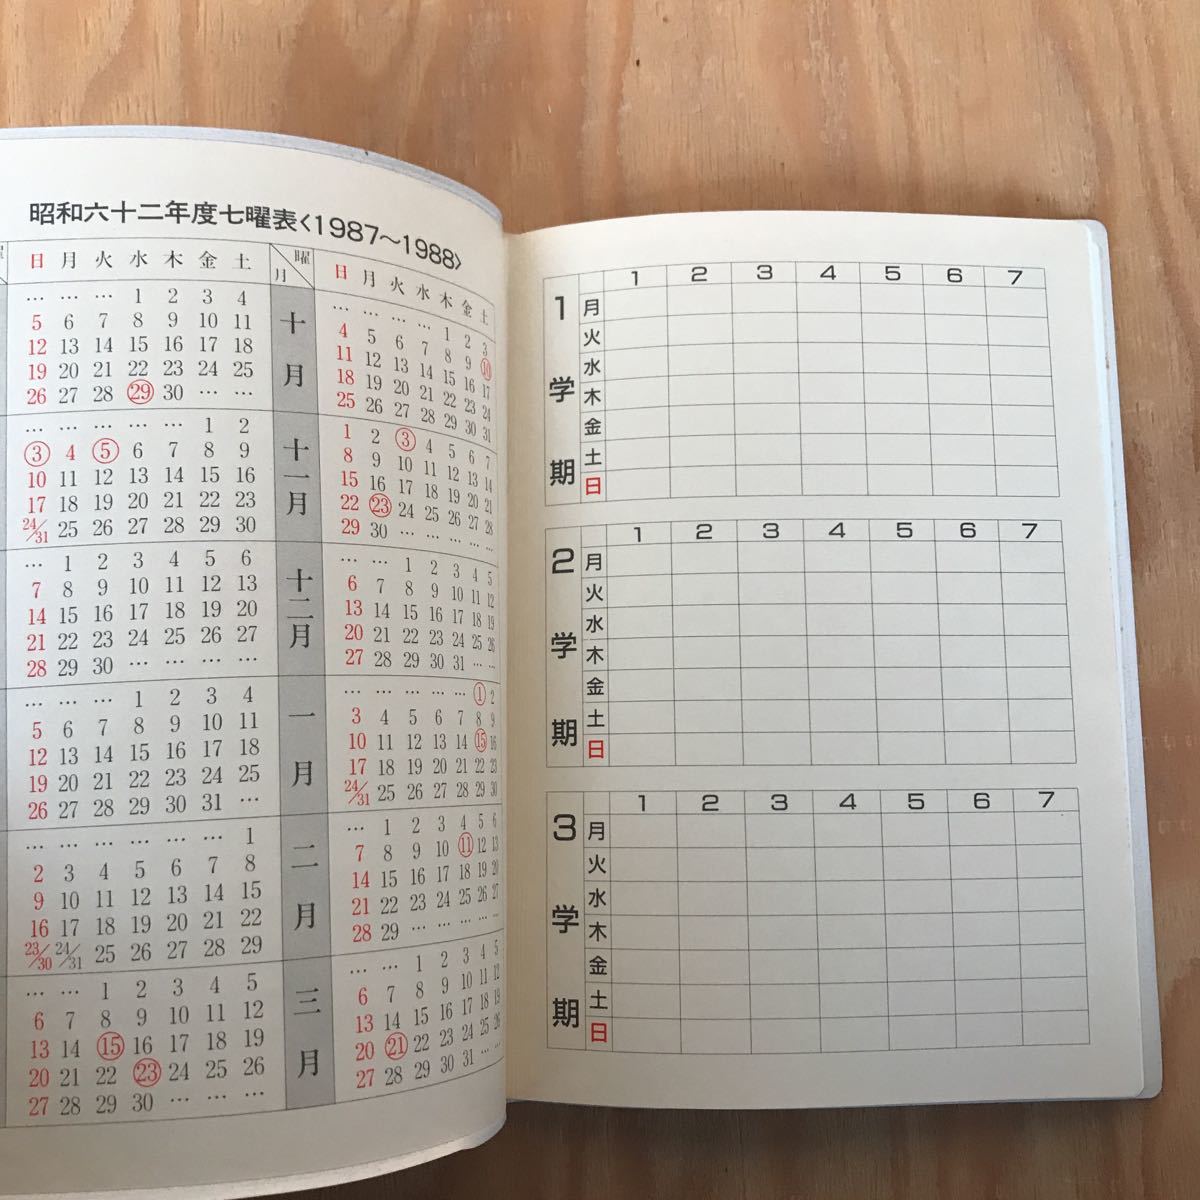 昭和六十二年度七曜表〈1987～1988〉
日 月 火 水 木 金 土
… … … 1 2 3 4
5 6 7 8 9 10 11
12 13 14 15 16 17 18
19 20 21 22 23 24 25
26 27 28 29 30 … …
… … … … … 1 2
3 4 5 6 7 8 9
10 11 12 13 14 15 16
17 18 19 20 21 22 23
24/31 25 26 27 28 29 30
… 1 2 3 4 5 6
7 8 9 10 11 12 13
14 15 16 17 18 19 20
21 22 23 24 25 26 27
28 29 30 … … … …
… … … 1 2 3 4
5 6 7 8 9 10 11
12 13 14 15 16 17 18
19 20 21 22 23 24 25
26 27 28 29 30 31 …
… … … … … … 1
2 3 4 5 6 7 8
9 10 11 12 13 14 15
16 17 18 19 20 21 22
23/30 24/31 25 26 27 28 29
… … 1 2 3 4 5
6 7 8 9 10 11 12
13 14 15 16 17 18 19
20 21 22 23 24 25 26
27 28 29 30 … … …
曜 月 日 月 火 水 木 金 土
十月
… … … … 1 2 3
4 5 6 7 8 9 10
11 12 13 14 15 16 17
18 19 20 21 22 23 24
25 26 27 28 29 30 31
十一月
1 2 3 4 5 6 7
8 9 10 11 12 13 14
15 16 17 18 19 20 21
22 23 24 25 26 27 28
29 30 … … … … …
十二月
… … 1 2 3 4 5
6 7 8 9 10 11 12
13 14 15 16 17 18 19
20 21 22 23 24 25 26
27 28 29 30 31 … …
一月
… … … … … 1 2
3 4 5 6 7 8 9
10 11 12 13 14 15 16
17 18 19 20 21 22 23
24/31 25 26 27 28 29 30
二月
… 1 2 3 4 5 6
7 8 9 10 11 12 13
14 15 16 17 18 19 20
21 22 23 24 25 26 27
28 29 … … … … …
三月
… … 1 2 3 4 5
6 7 8 9 10 11 12
13 14 15 16 17 18 19
20 21 22 23 24 25 26
27 28 29 30 31 … …
1 2 3 4 5 6 7
1学期
月
火
水
木
金
土
日
1 2 3 4 5 6 7
2学期
月
火
水
木
金
土
日
1 2 3 4 5 6 7
3学期
月
火
水
木
金
土
日